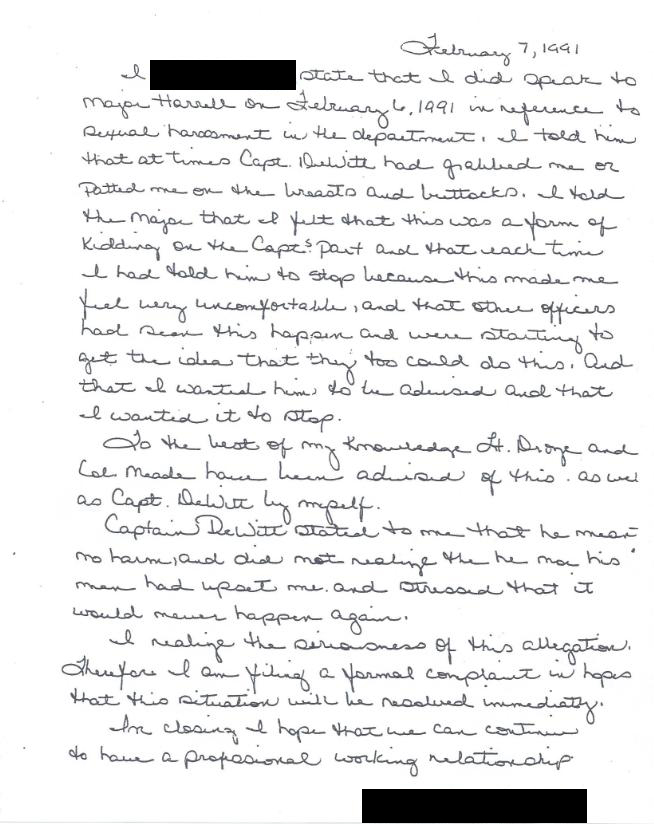 February 7, 1991
I state that I did speak to
Major Harrell on February 6, 1991 in reference to
sexual harassment in the department. I told him
that at times Capt. DeWitt had grabbed me or
patted me on the breasts and buttocks. I told
the Major that I felt that this was a form of
Kidding on the Capt's part and that each time
I had told him to stop because this made me
feel very uncomfortable, and that other officers
had seen this happen and were starting to
get the idea that they too could do this. And
that I wanted him, to be advised and that
I wanted it to stop.
To the best of my Knowledge Lt. Droze and
Col. Meade have been advised of this. as well
as Capt. DeWitt by myself.
Captain DeWitt stated to me that he mean
no harm, and did not realize the he nor his
men had upset me. and stressed that it
would never happen again.
I realize the seriousness of this allegation.
Therefore I am filing a formal complaint in hopes
that this situation will be resolved immediatly.
In closing I hope that we can continue
to have a professional working relationship